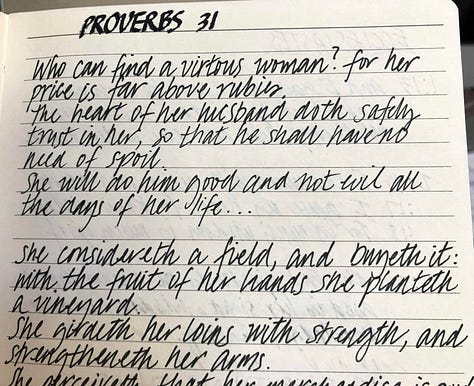 PROVERBS 31
Who can find a virtous woman? for her
price is far above rubies.
The heart of her husband doth safely
trust in her, so that he shall have no
need of spoil
She will do him good and not evil all
the days of her life...
She considereth a field, and buyeth it:
with the fruit of her hands she planteth
a vineyard.
She girdeth her loins with strength, and
strengtheneth her arms.
She perceiveth that her merchandise is